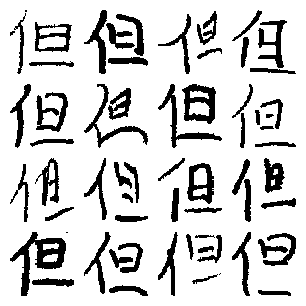 但但但但
但但但但
但但但但
但但但但